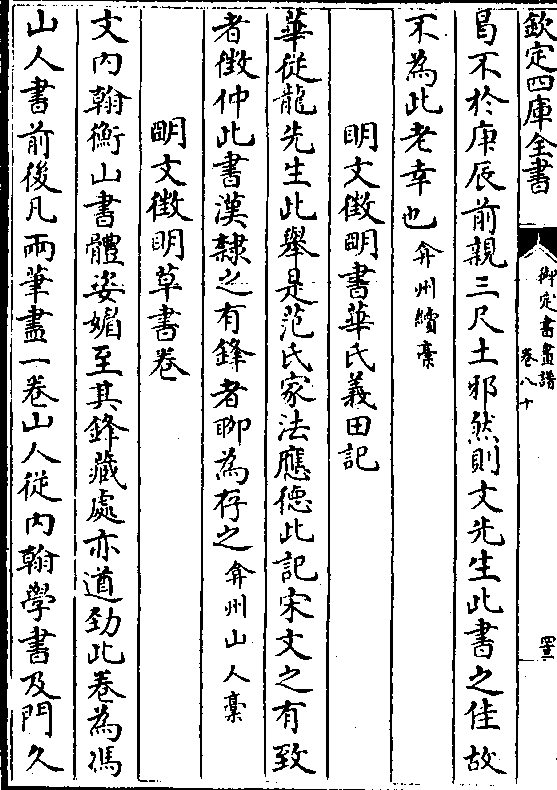 欽定四庫全書
御定書畫譜
卷八十
曷不於庚辰前親三尺土邪然則文先生此書之佳故
不為此老幸也 弇州續稾
明文徵明書華氏義田記
華從龍先生此舉是范氏家法應德此記宋文之有致
者徵仲此書漢隸之有鋒者聊為存之 弇州山人稾
明文徵明草書卷
文內翰衡山書體姿媚至其鋒藏處亦遒勁此卷為馮
山人書前後凡兩筆盡一卷山人從內翰學書及門久